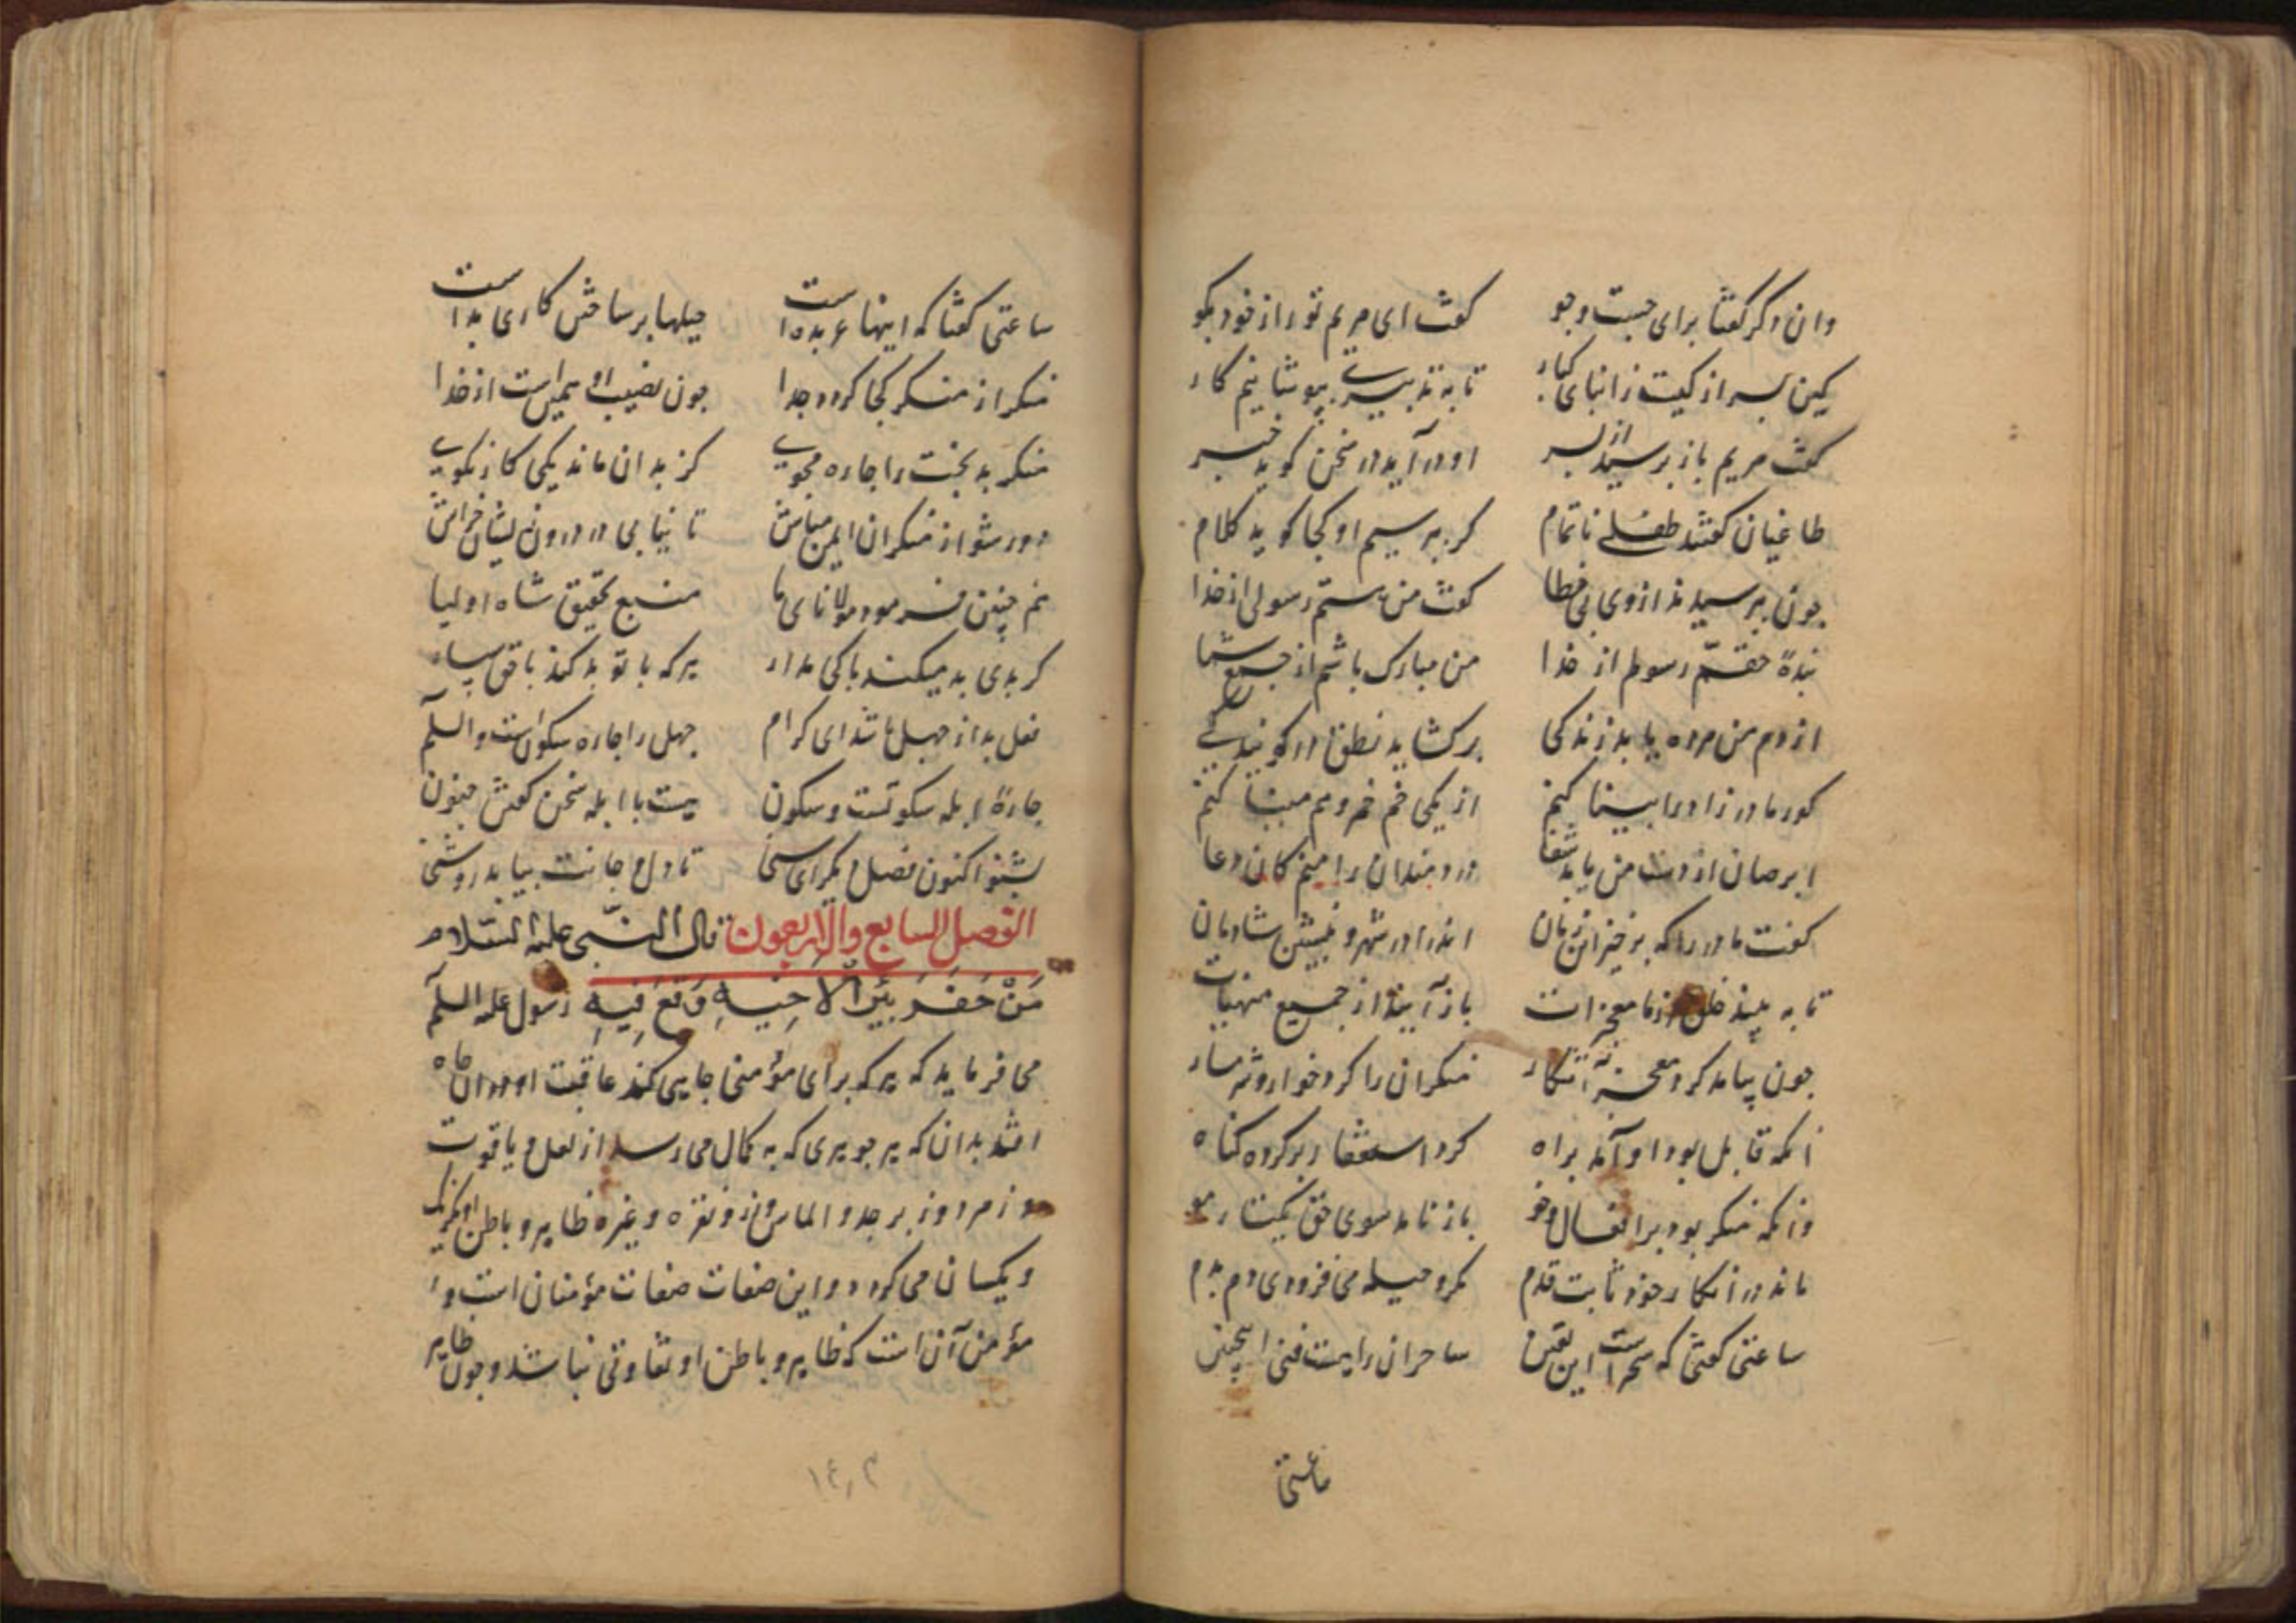 وان دکر کفتا برای جست وجو کفت ای مریم تو راز خود بکو
کین پسر از کیست ز انبای کبار تا به تدبیری بپوشانیم کار
کفت مریم باز پرسید از پسر او درآید در سخن کوید خبر
طاغیان کفتند طفلی ناتمام کر بپرسیم او کجا کوید کلام
چون بپرسیدند ازوی بی خطا کفت من هستم رسولی از خدا
بندهٔ حقم رسولم از خدا من مبارک باشم از جمع شما
از دم من مرده یابد زندکی برکشاید نطق در کویندکی
کور مادرزاد را بینا کنم از یکی خم
ابرصان از دست من یابد شفا دردمندان را منم کان دعا
کفت مادر را که برخیز این زمان اندرا در شهر و بنشین شادمان
تا به بیند خلق از ما معجزات باز آیند از جمیع منهیات
چون پیامد کرد معجزه آشکار منکران را کرد خوار و شرمسار
انکه قابل بود او آمد براه کرد استغفار بر کرده کناه
وانکه منکر بود بر افعال او باز نامد سوی حق یکتار مو
ماند در انکار خود ثابت قدم مکر و حیله می فزودی دم بدم
ساعتی کفتی که سحر است این یقین ساحران را هست فنی اینچنین
ساعتی
ساعتی کفتا که اینها عربده است حیلها بر ساختن کاری بد است
منکر از منکر کجا کردد جدا چون نصیب او همین است از خدا
منکر بدبخت را چاره مجوی کز بدان ماند یکی کار نکوی
دور شو از منکران ایمن مباش تا نیابی در درون ایشان خراش
هم چنین فرمود مولانای ما منبع تحقیق شاه اولیا
کر بدی بد میکند باکی مدار هرکه با تو بد کند با حق سپار
فعل بد از جهل باشد ای کرام جهل را چاره سکوتست والسلم
چارهٔ ابله سکوتست و سکون هست با ابله سخن کفتن جنون
بشنو اکنون فصل دیکر ای سخی تا دل و جانت بیابد روشنی
الفصل السابع والاربعون قال النبی علیه السلام
مَنْ حَفَرَ بِئْرًا لِاَخِیهِ وَقَعَ فِیهِ رسول علیه السلم
می فرماید که هرکه برای مؤمنی چاهی کند عاقبت او در آن چاه
افتد بدان که هر جوهری که به کمال می رسد از لعل و یاقوت
و زمرد و زبرجد و الماس و زر و نقره و غیره ظاهر و باطن او یکرنک
و یکسان می کردد و این صفات صفات مؤمنان است و
مؤمن آن است که ظاهر و باطن او تفاوتی نباشد و چون ظاهر